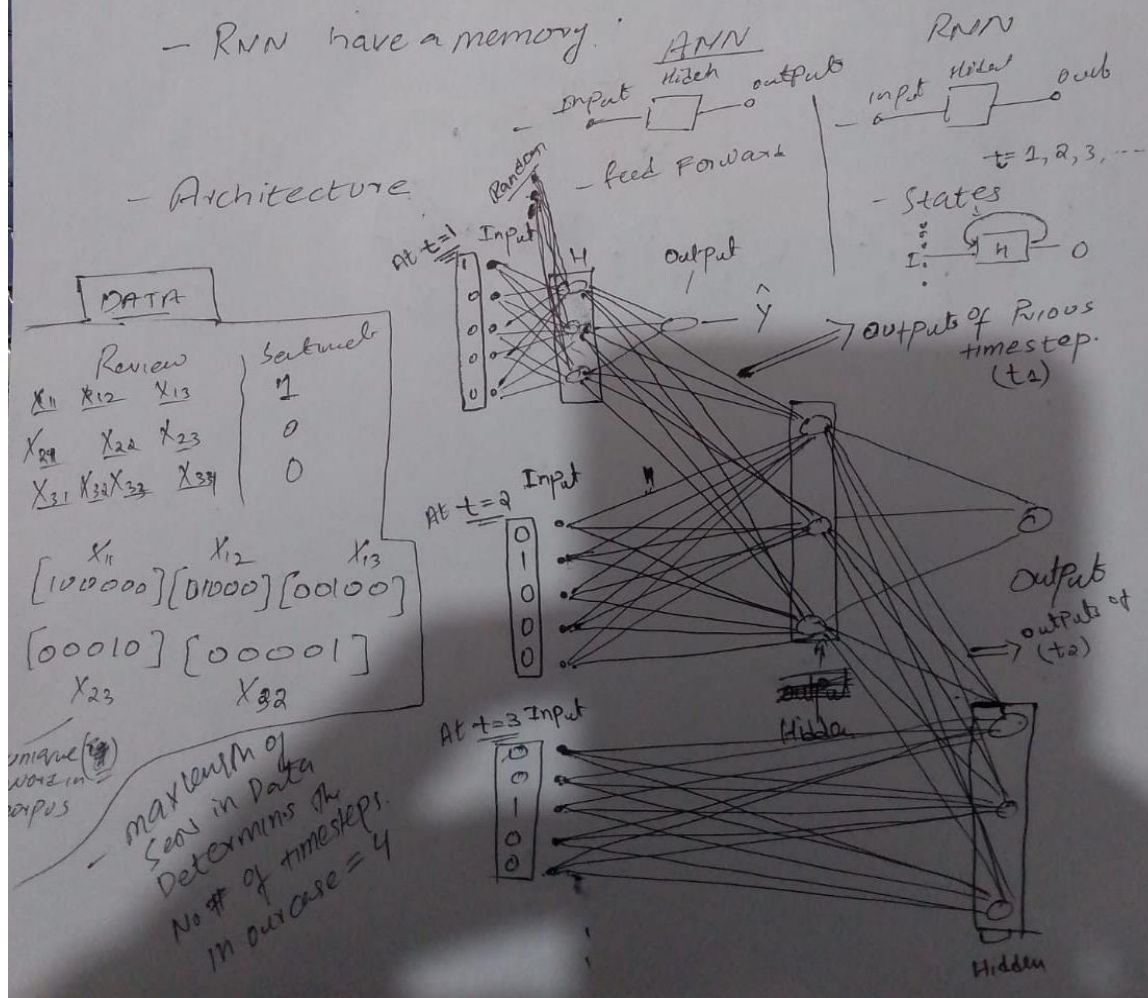 - RNN have a memory.
ANN
Input Hiden outputs
- feed Forward
RNN
input Hiden
t = 1, 2, 3, ...
- States
I H O
- Architecture
Random
At t=1 Input H output
1
0
0
0
0
Ŷ
outputs of Prious
timestep.
(t1)
DATA
Review
X11 X12 X13 1
X21 X22 X23 0
X31 X32 X33 X34 0
X11 X12 X13
[100000] [01000] [00100]
[00010] [00001]
X23 X32
unique
word in
corpus
- max length of
in Data
Determins the
No # of timesteps.
in our case = 4
At t=2 Input
0
1
0
0
0
Hidden
Output
outputs of
(t2)
At t=3 Input
0
0
1
0
0
Hidden